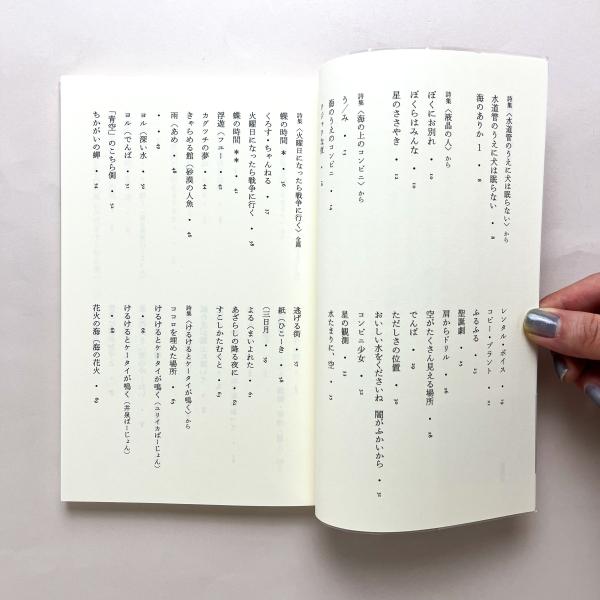 詩集〈水道管のうえに犬は眠らない〉から
水道管のうえに犬は眠らない ・ 8
海のありか 1 ・ 8
詩集〈液晶の人〉から
ぼくにお別れ ・ 10
ぼくらはみんな ・ 12
星のささやき ・ 13
詩集〈海の上のコンビニ〉から
う/み ・ 12
海のうえのコンビニ ・ 14
レンタル・ボイス ・ 19
コピー・プラント
ふるふる
聖誕劇 ・ 23
肩からドリル
空がたくさん見える場所 ・ 28
でんぱ
ただしさの位置 ・ 30
おいしい水をくださいね 闇がふかいから ・ 31
コンビニ少女 ・ 32
星の観測 ・ 33
水たまりに、空 ・ 33
詩集〈火曜日になったら戦争に行く〉全篇
蝶の時間 * ・ 36
くろす・ちゃんねる ・ 37
火曜日になったら戦争に行く ・ 38
蝶の時間 ** ・ 41
浮遊(フユー ・ 43
カグツチの夢 ・ 44
きゃらめる館(砂漠の人魚
雨(あめ ・ 48
・ ・ 49
ヨル(深い水 ・ 51
ヨル(でんぱ ・ 52
「青空」のこちら側 ・ 54
ちかがいの蟬 ・ 54
逃げる街 ・ 57
紙(ひこーき ・ 58
(三日月 ・ 59
よる(まいよれた ・ 60
あざらしの降る夜に ・ 62
すこしかたむくと ・ 63
詩集〈けるけるとケータイが鳴く〉から
ココロを埋めた場所 ・ 65
けるけるとケータイが鳴く(ユリイカばーじょん)
けるけるとケータイが鳴く(井泉ばーじょん)
花火の海(海の花火 ・ 69